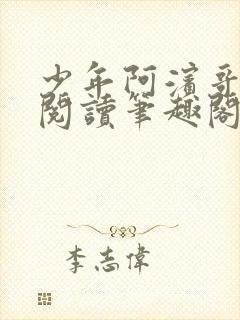 少年阿濱哥
閱讀筆趣閣
李志偉